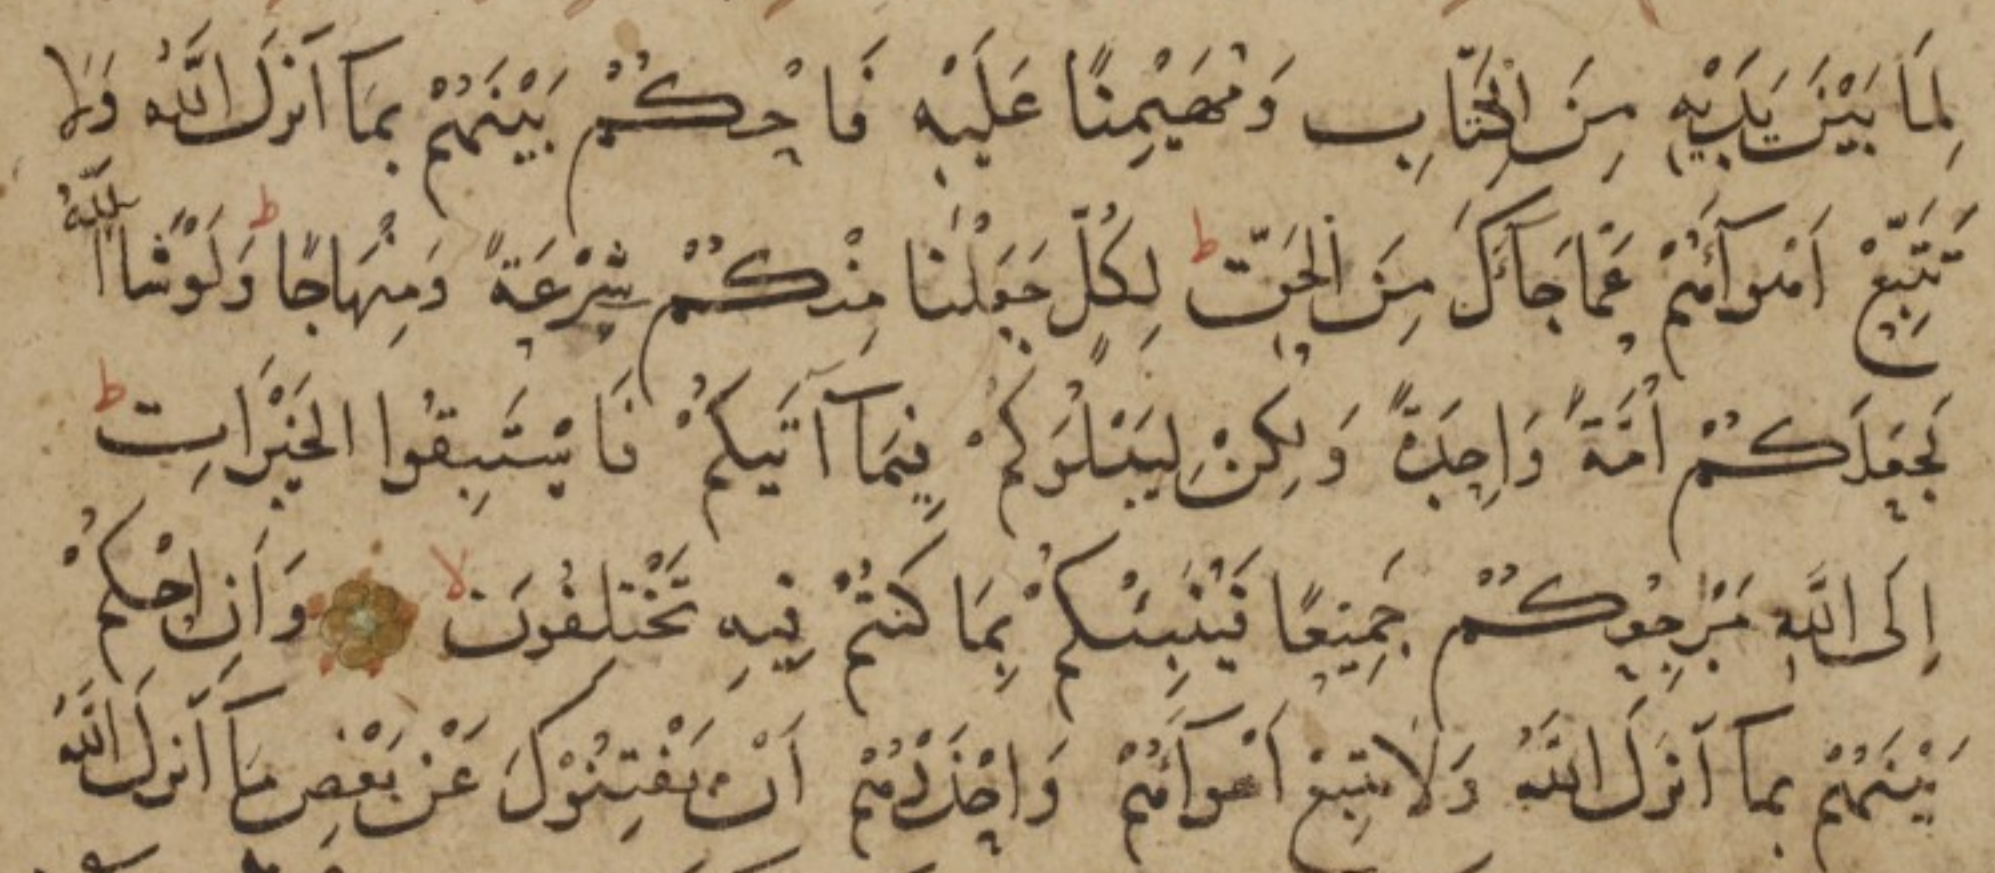 لِمَا بَيْنَ يَدَيْهِ مِنَ الْكِتَابِ وَمُهَيْمِنًا عَلَيْهِ فَاحْكُمْ بَيْنَهُمْ بِمَا أَنْزَلَ اللَّهُ وَلَا
تَتَّبِعْ أَهْوَآءَهُمْ عَمَّا جَآءَكَ مِنَ الْحَقِّ ط لِكُلٍّ جَعَلْنَا مِنْكُمْ شِرْعَةً وَمِنْهَاجًا ط وَلَوْ شَآءَ اللَّهُ
لَجَعَلَكُمْ أُمَّةً وَاحِدَةً وَلَكِنْ لِيَبْلُوَكُمْ فِيمَا آتَيكُمْ فَاسْتَبِقُوا الْخَيْرَاتِ ط
إِلَى اللَّهِ مَرْجِعُكُمْ جَمِيعًا فَيُنَبِّئُكُمْ بِمَا كُنْتُمْ فِيهِ تَخْتَلِفُونَ لا وَأَنِ احْكُمْ
بَيْنَهُمْ بِمَا أَنْزَلَ اللَّهُ وَلَا تَتَّبِعْ أَهْوَآءَهُمْ وَاحْذَرْهُمْ أَنْ يَفْتِنُوكَ عَنْ بَعْضِ مَا أَنْزَلَ اللَّهُ